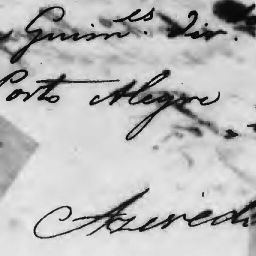 Guim.es Dir.
Porto Alegre
Azeredo